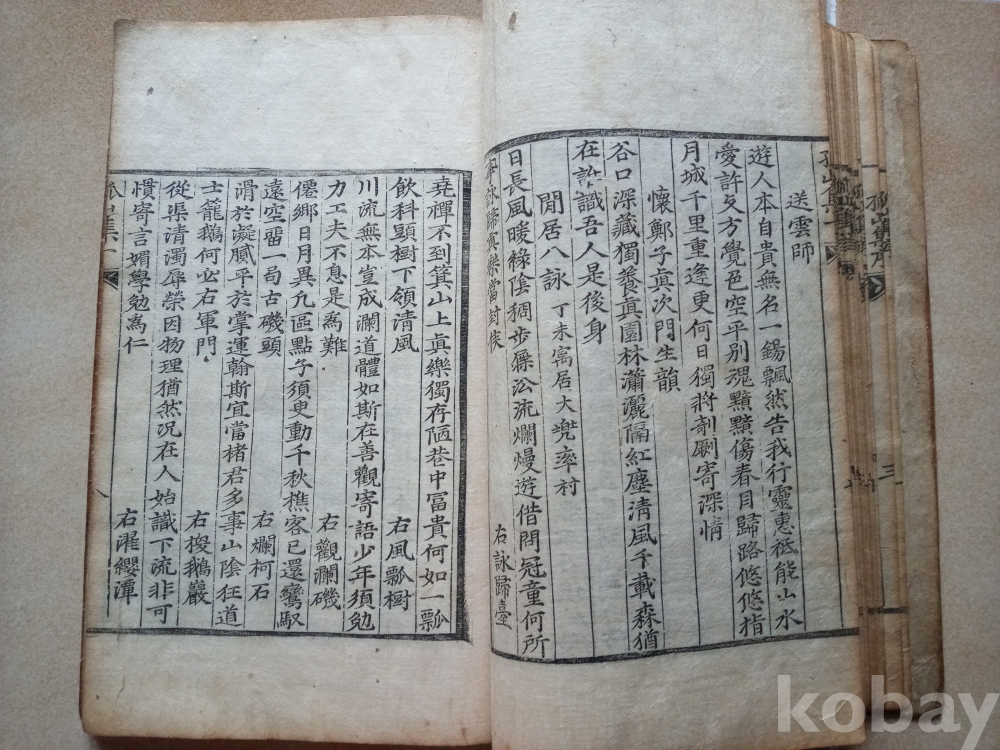 孤山集序
三
送雲師
遊人本自貴無名一錫飄然告我行靈惠秪能山水
愛許交方覺色空平別魂黯黯傷春目歸路悠悠指
月城千里重逢更何日獨將剞劂寄深情
懷鄭子眞次門生韻
谷口深藏獨養眞園林瀟灑隔紅塵清風千載森猶
在誰識吾人是後身
閒居八詠 丁未寓居大兜率村
日長風暖綠陰稠步屧沿流爛熳遊借問冠童何所
詠歸眞樂當封侯 右詠歸臺
堯禪不到箕山上眞樂獨存陋巷中富貴何如一瓢
飲科頭樹下領清風 右風瓢樹
川流無本豈成瀾道體如斯在善觀寄語少年須勉
力工夫不息是爲難 右觀瀾磯
僊鄉日月異凡區點子須更動千秋樵客已還鸞馭
遠空留一局古磯頭 右爛柯石
滑於凝膩平於掌運翰斯宜當楮君多事山陰狂道
士籠鵝何必右軍門 右換鵝巖
從渠清濁辱榮因物理猶然況在人始識下流非可
慣寄言媚學勉爲仁 右濯纓潭
八
kobay